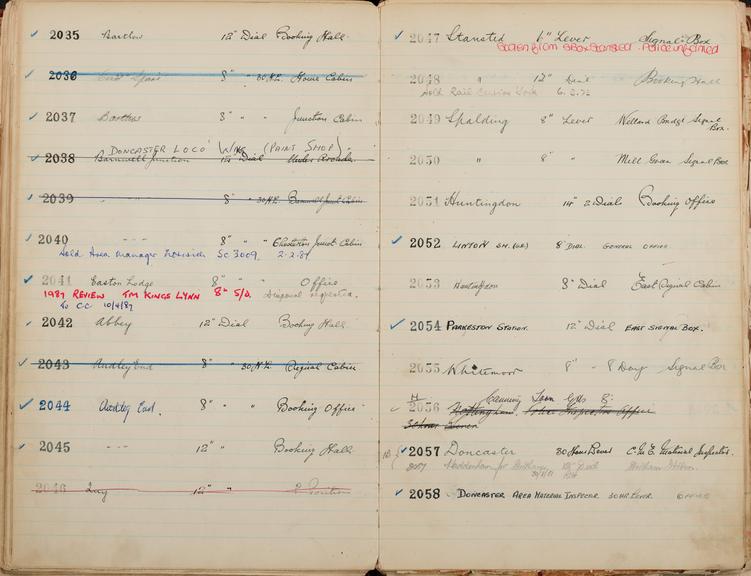 2035 Bartlow 12" Dial Booking Hall
2036 8" " 30 Hr. Home Cabin
2037 Bartlow 8" " Junction Cabin
DONCASTER LOCO' WKS (PAINT SHOP)
2038 Barnwell Junction 12" Dial Under Arcade
2039 8" " 30 Hr. Barnwell Junct Cabin
2040 - - - 8" " Chesterton Junct Cabin
Sold Area Manager SC 3009. 2.2.87
2041 Easton Lodge 8" " Office
1987 REVIEW TM KINGS LYNN 8" S/D. Disposal requested.
To CC 10/4/87
2042 Abbey 12" Dial Booking Hall
2043 Audley End 8" " 30 Hr. Signal Cabin
2044 Audley End. 8" " Booking Office
2045 - - - 12" " Booking Hall
2046 12" " Position
2047 Stansted 6" Lever Signal Box
Stolen from S Box Stansted. Police informed
2048 " 12" Dial Booking Hall
Sold Rail York 6.2.75
2049 Spalding 8" Lever Welland Bridge Signal Box.
2050 " 8" " Mill Green Signal Box
2051 Huntingdon 14" 2 Dial Booking Office
2052 LINTON 8" DIAL GENERAL OFFICE
2053 Huntingdon 8" Dial East Signal Cabin
2054 PARKESTON STATION. 12" DIAL EAST SIGNAL BOX.
2055 Whitemoor 8" " 8 Day Signal Box
H Canning Town Gds
2056 Nottingham, Inspector Office
30 hour
2057 Doncaster 30 Hour Lever C.M.E. Material Inspector.
2057
2058 DONCASTER AREA MATERIAL INSPECTOR 30 HR LEVER OFFICE